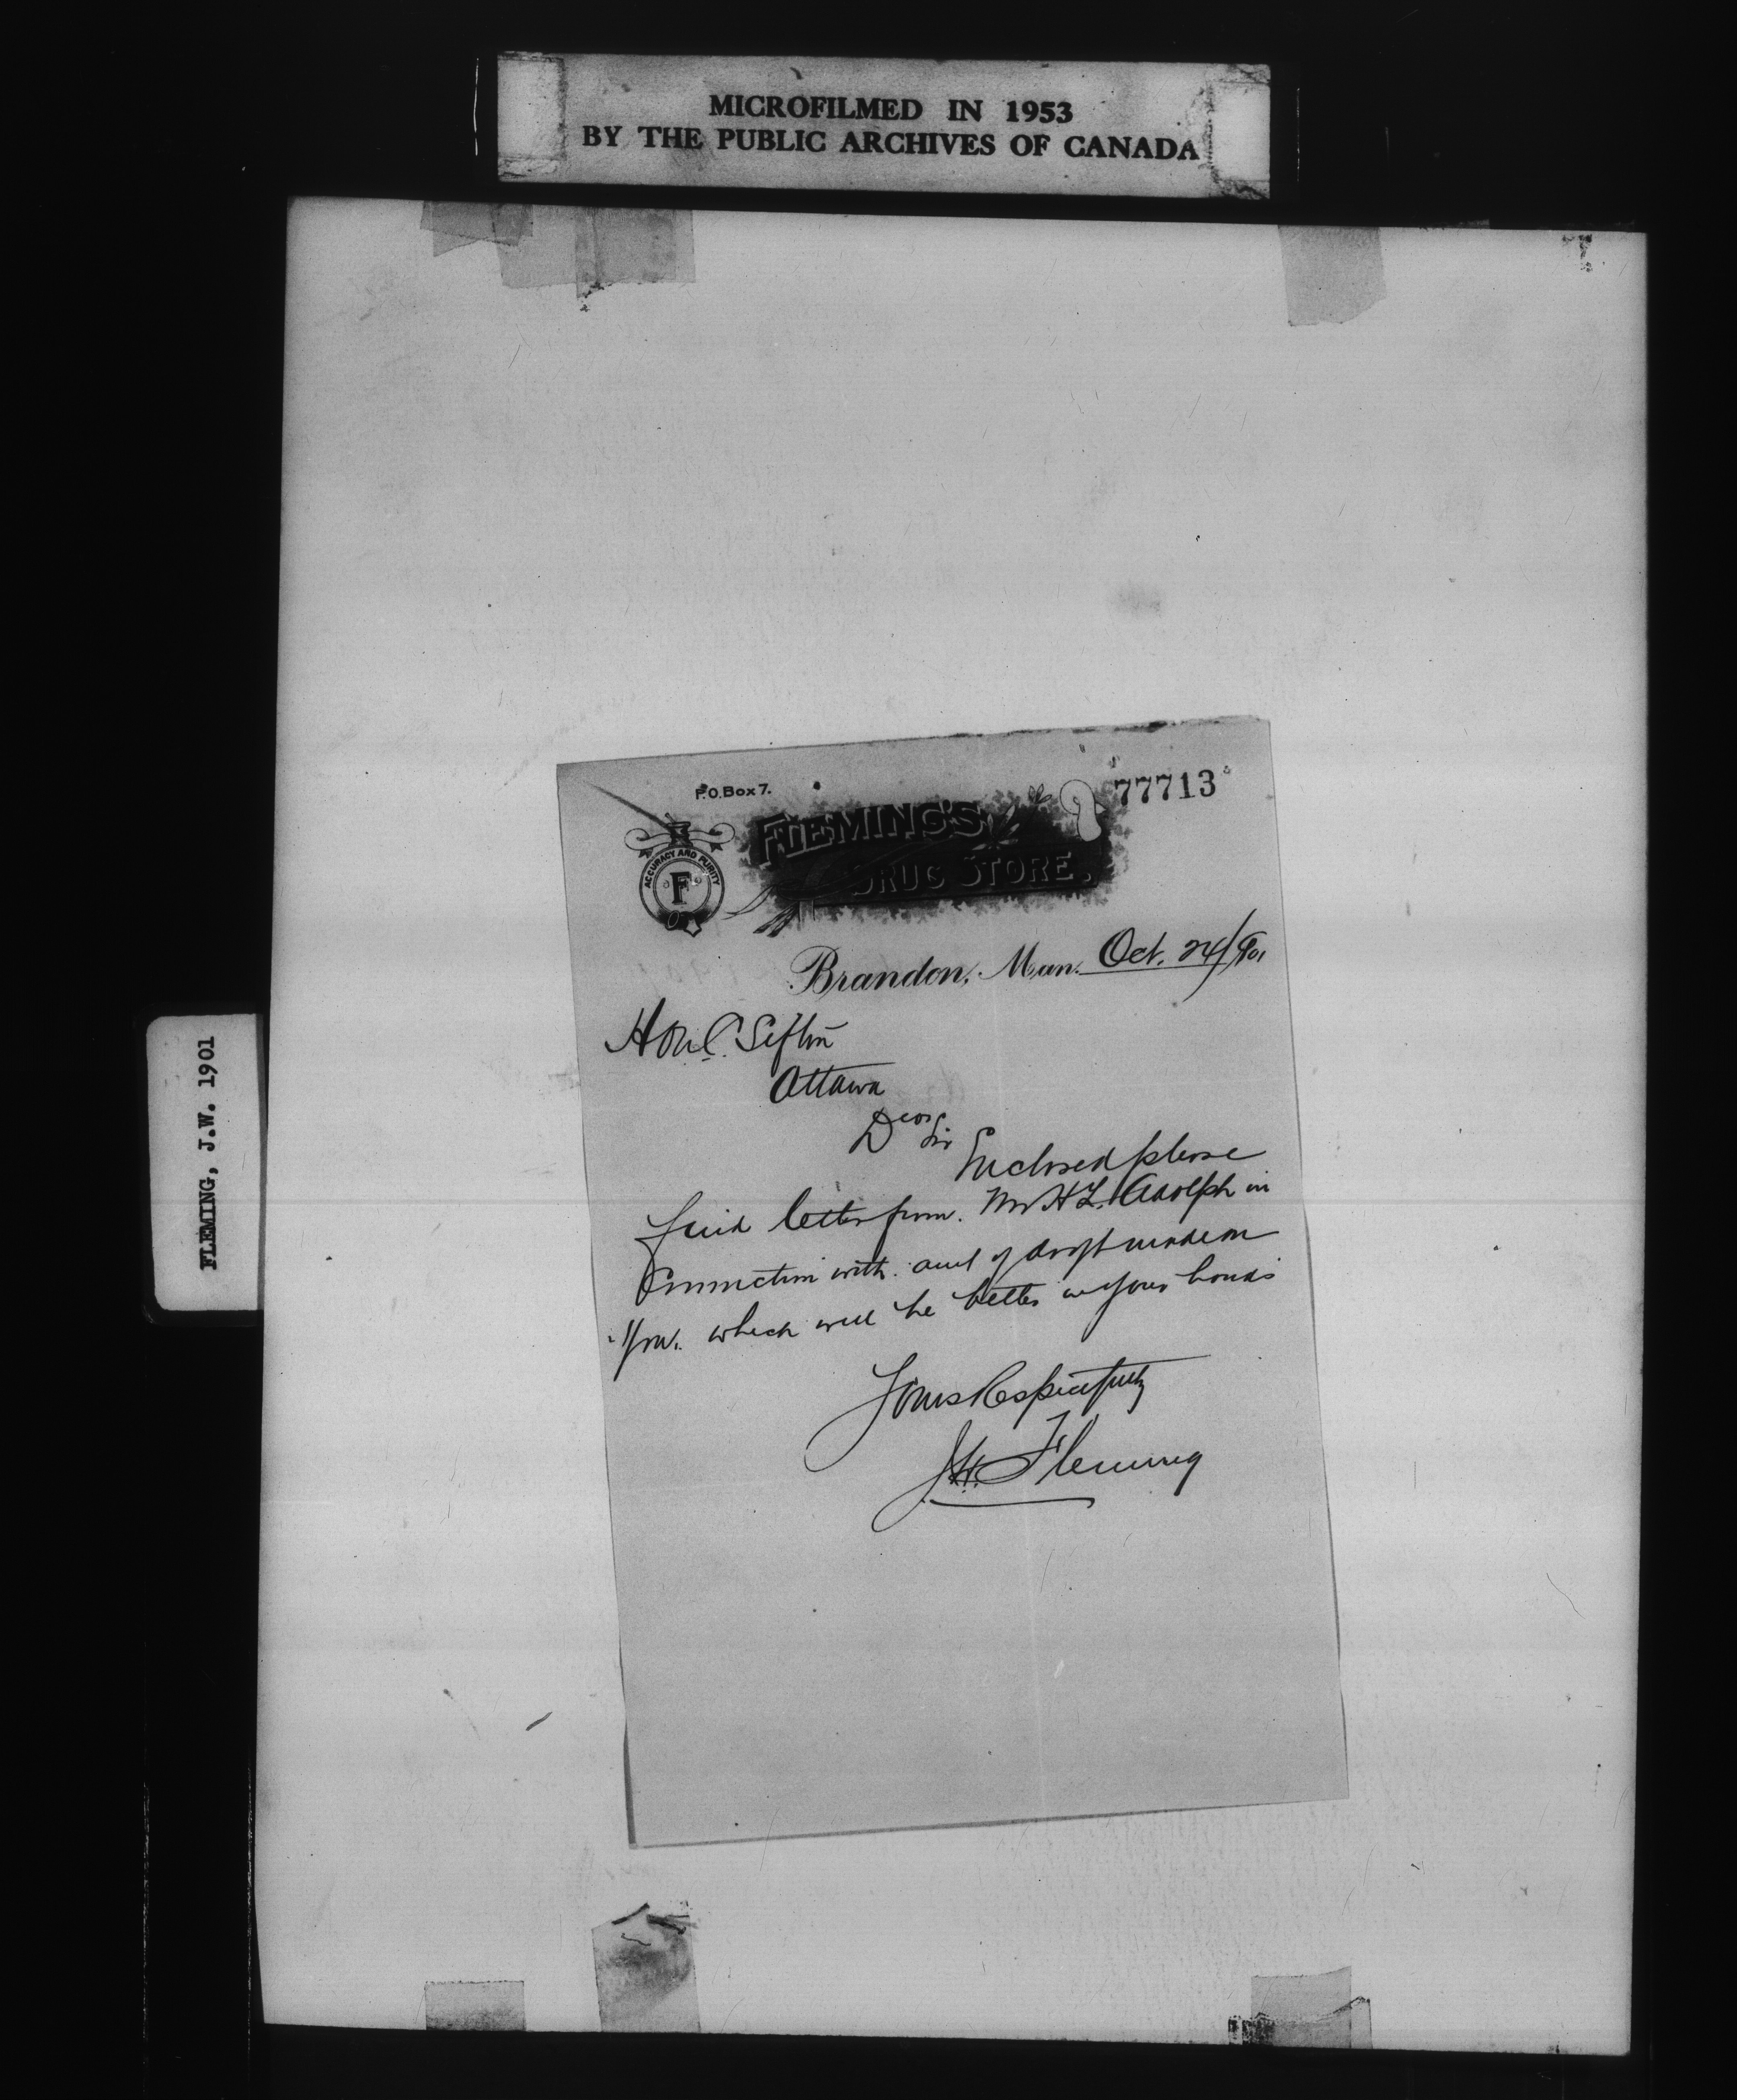 MICROFILMED IN 1953
BY THE PUBLIC ARCHIVES OF CANADA
FLEMING, J.W. 1901
P.O. Box 7.
77713
ACCURACY AND PURITY
F
FLEMING'S
DRUG STORE.
Brandon, Man. Oct. 24/1901
Hon C. Sifton
Ottawa
Dear Sir
Enclosed please
find letter from Mr H L. Adolph in
Connection with amt of draft made on
you. which will be better in your hands
Yours Respectfully
J.W. Fleming